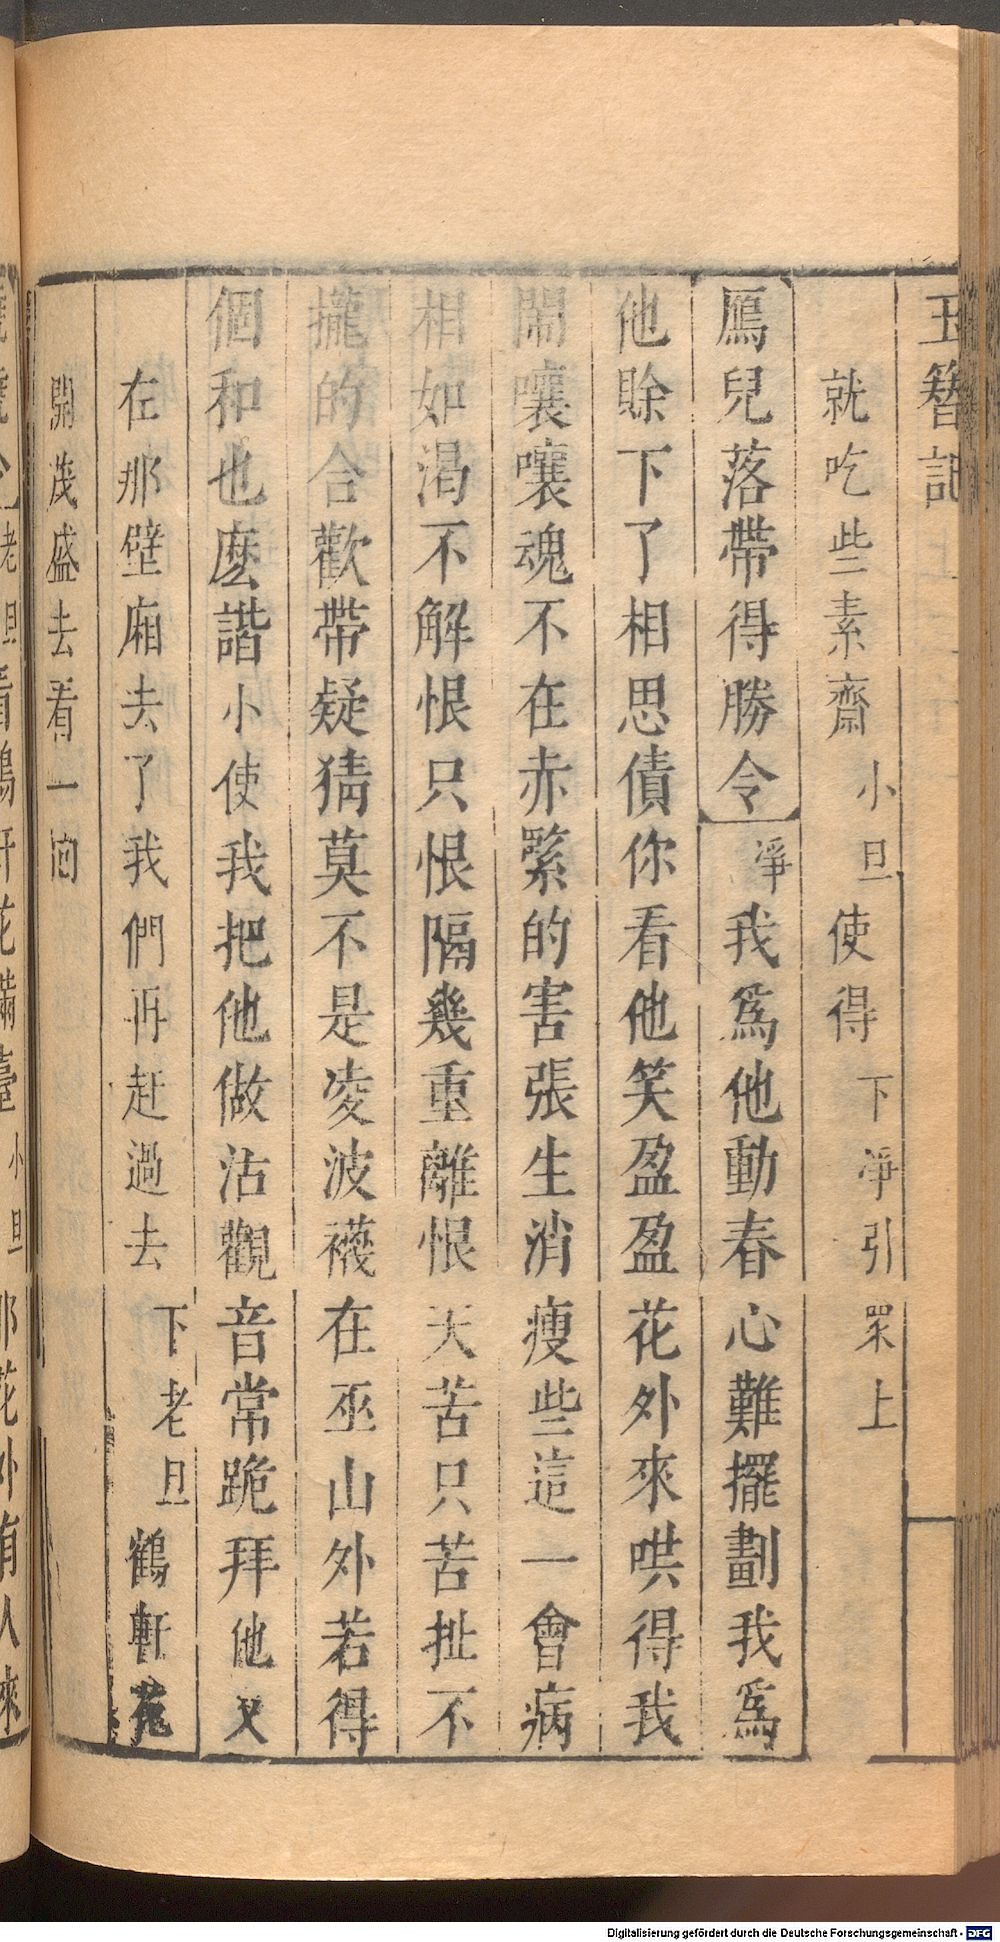 玉簪記
就吃些素齋 小旦 使得 下淨引眾上
鴈兒落帶得勝令 淨 我爲他動春心難擺劃我爲
他賒下了相思債你看他笑盈盈花外來哄得我
鬧嚷嚷魂不在赤緊的害張生消瘦些這一會病
相如渴不解恨只恨隔幾重離恨天苦只苦扯不
攏的合歡帶疑猜莫不是凌波襪在巫山外若得
個和也麽諧小使我把他做沽觀音常跪拜他又
在那壁廂去了我們再赶過去 下 老旦 鶴軒花
開茂盛去看一
老旦看鶴軒花滿臺 小旦 那花外有人來
Digitalisierung gefördert durch die Deutsche Forschungsgemeinschaft - DFG